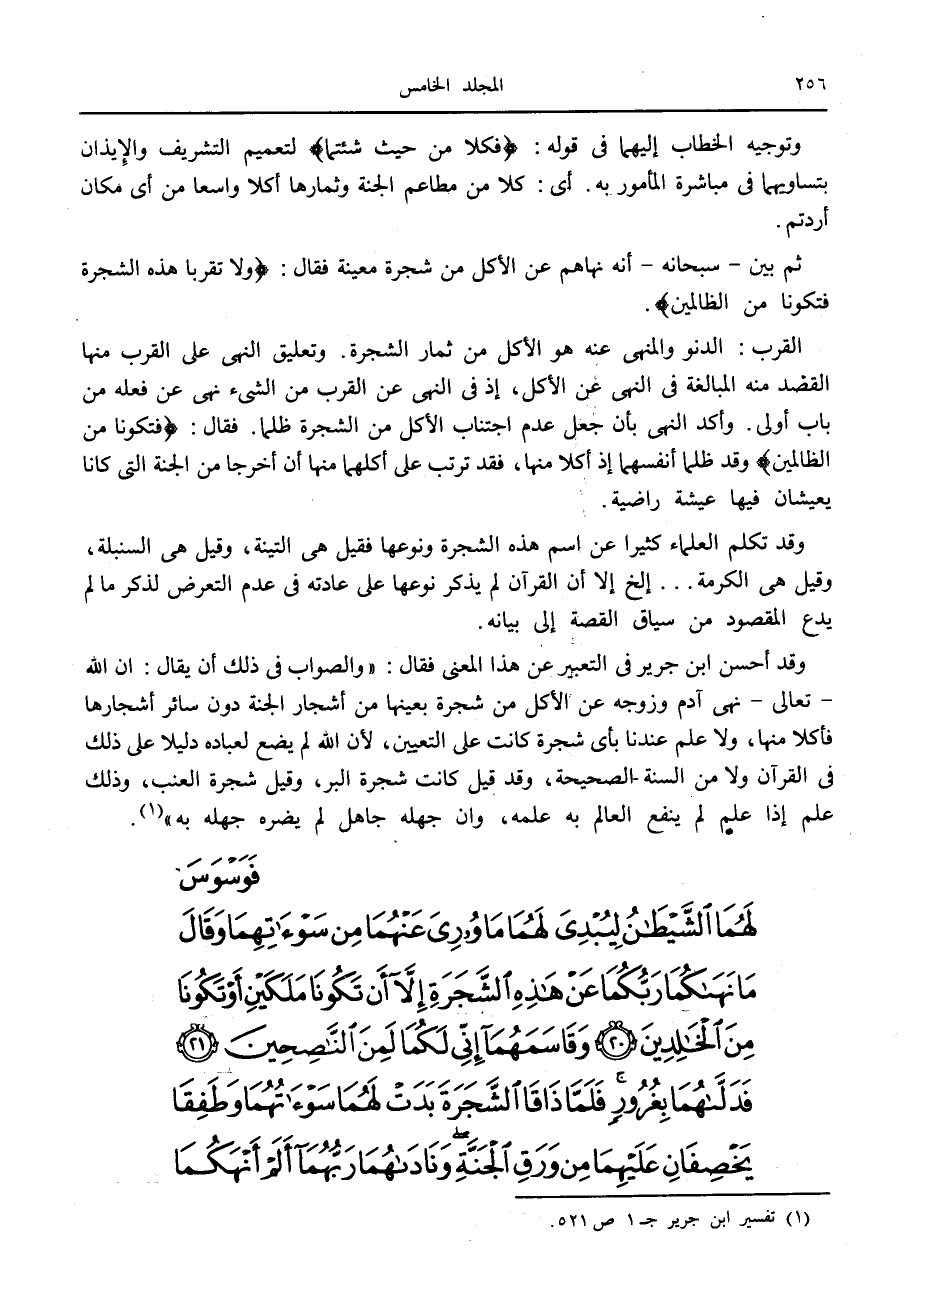 ٢٥٦ المجلد الخامس
وتوجيه الخطاب إليهما فى قوله : ﴿فكلا من حيث شئتما﴾ لتعميم التشريف والإيذان
بتساويهما فى مباشرة المأمور به. أى : كلا من مطاعم الجنة وثمارها أكلا واسعا من أى مكان
أردتم.
ثم بين - سبحانه - أنه نهاهم عن الأكل من شجرة معينة فقال : ﴿ولا تقربا هذه الشجرة
فتكونا من الظالمين﴾.
القرب : الدنو والمنهى عنه هو الأكل من ثمار الشجرة. وتعليق النهى على القرب منها
القصد منه المبالغة فى النهى عن الأكل، إذ فى النهى عن القرب من الشىء نهى عن فعله من
باب أولى. وأكد النهى بأن جعل عدم اجتناب الأكل من الشجرة ظلما. فقال : ﴿فتكونا من
الظالمين﴾ وقد ظلما أنفسهما إذ أكلا منها، فقد ترتب على أكلهما منها أن أخرجا من الجنة التى كانا
يعيشان فيها عيشة راضية.
وقد تكلم العلماء كثيرا عن اسم هذه الشجرة ونوعها فقيل هى التينة، وقيل هى السنبلة،
وقيل هى الكرمة... إلخ إلا أن القرآن لم يذكر نوعها على عادته فى عدم التعرض لذكر ما لم
يدع المقصود من سياق القصة إلى بيانه.
وقد أحسن ابن جرير فى التعبير عن هذا المعنى فقال : «والصواب فى ذلك أن يقال : ان الله
- تعالى - نهى آدم وزوجه عن الأكل من شجرة بعينها من أشجار الجنة دون سائر أشجارها
فأكلا منها، ولا علم عندنا بأى شجرة كانت على التعيين، لأن الله لم يضع لعباده دليلا على ذلك
فى القرآن ولا من السنة الصحيحة، وقد قيل كانت شجرة البر، وقيل شجرة العنب، وذلك
علم إذا علم لم ينفع العالم به علمه، وان جهله جاهل لم يضره جهله به»(١).
فَوَسْوَسَ
لَهُمَا ٱلشَّيْطَٰنُ لِيُبْدِىَ لَهُمَا مَا وُۥرِىَ عَنْهُمَا مِن سَوْءَٰتِهِمَا وَقَالَ
مَا نَهَىٰكُمَا رَبُّكُمَا عَنْ هَٰذِهِ ٱلشَّجَرَةِ إِلَّآ أَن تَكُونَا مَلَكَيْنِ أَوْ تَكُونَا
مِنَ ٱلْخَٰلِدِينَ ٢٠ وَقَاسَمَهُمَآ إِنِّى لَكُمَا لَمِنَ ٱلنَّٰصِحِينَ ٢١
فَدَلَّىٰهُمَا بِغُرُورٍۚ فَلَمَّا ذَاقَا ٱلشَّجَرَةَ بَدَتْ لَهُمَا سَوْءَٰتُهُمَا وَطَفِقَا
يَخْصِفَانِ عَلَيْهِمَا مِن وَرَقِ ٱلْجَنَّةِۖ وَنَادَىٰهُمَا رَبُّهُمَآ أَلَمْ أَنْهَكُمَا
(١) تفسير ابن جرير جـ ١ ص ٥٢١.